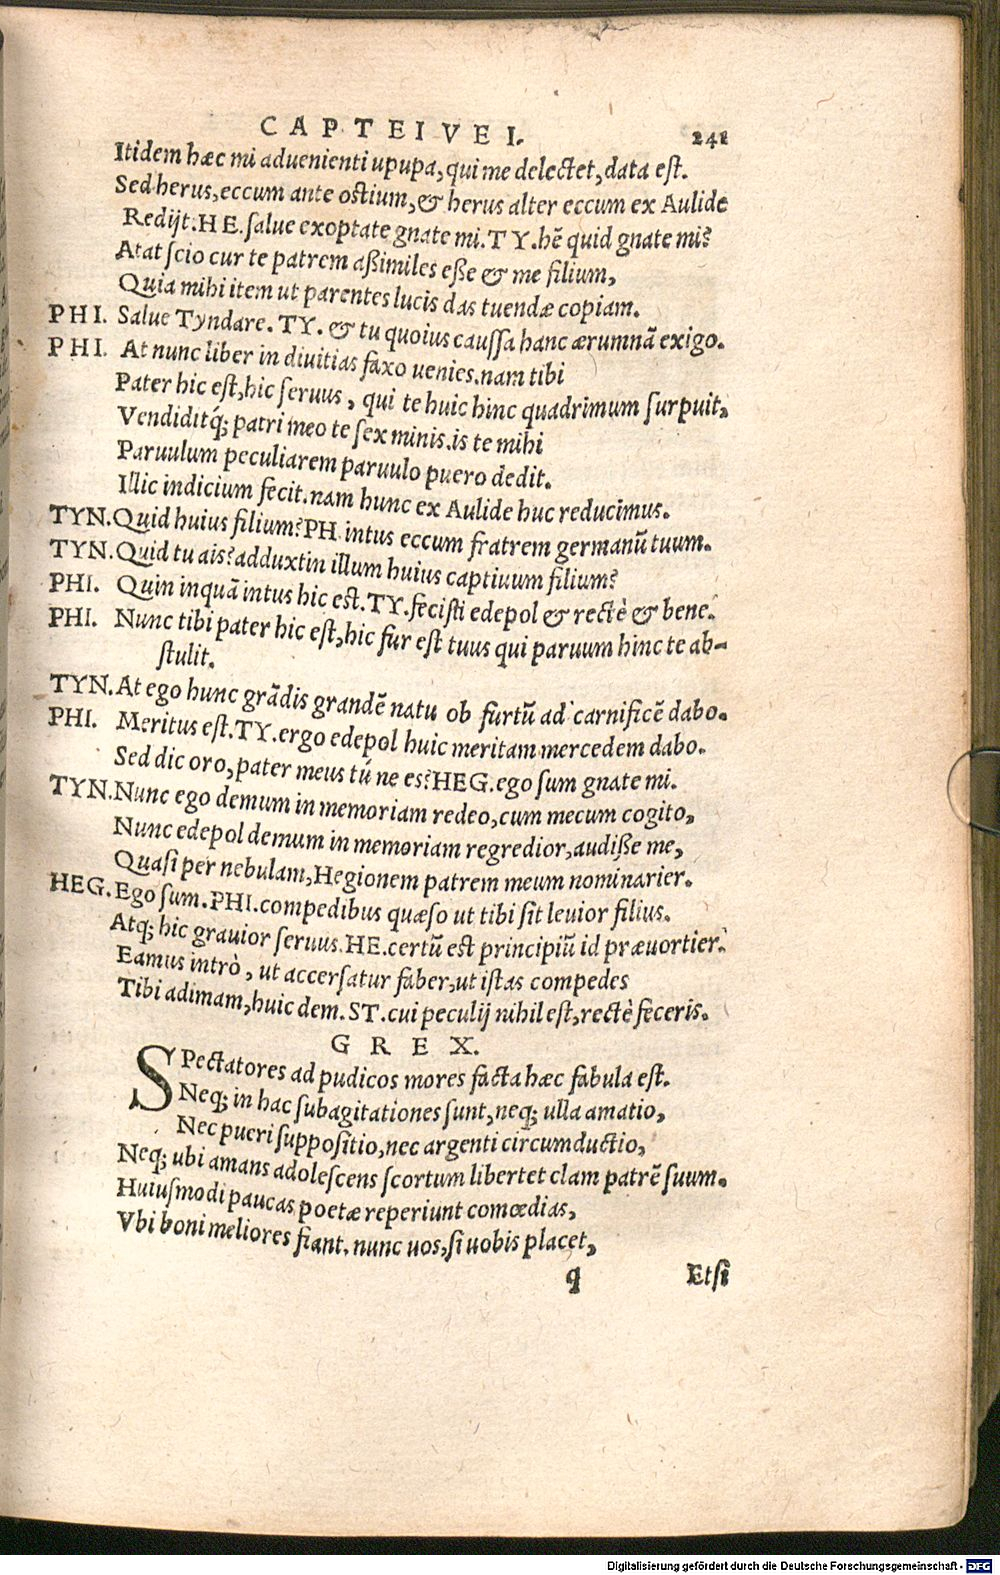 CAPTEIVEI. 241
Itidem hæc mi aduenienti upupa, qui me delectet, data est.
Sed herus, eccum ante ostium, & herus alter eccum ex Aulide
Redijt. HE. salue exoptate gnate mi. TY. hē quid gnate mi?
Atat scio cur te patrem aßimiles eße & me filium,
Quia mihi item ut parentes lucis das tuendæ copiam.
PHI. Salue Tyndare. TY. & tu quoius caussa hanc ærumnā exigo.
PHI. At nunc liber in diuitias faxo uenies. nam tibi
Pater hic est, hic seruus, qui te huic hinc quadrimum surpuit,
Vendiditq́; patri meo te sex minis. is te mihi
Paruulum peculiarem paruulo puero dedit.
Illic indicium fecit. nam hunc ex Aulide huc reducimus.
TYN. Quid huius filium? PH. intus eccum fratrem germanū tuum.
TYN. Quid tu ais? adduxtin illum huius captiuum filium?
PHI. Quin inquā intus hic est. TY. fecisti edepol & rectè & bene.
PHI. Nunc tibi pater hic est, hic fur est tuus qui paruum hinc te ab-
stulit.
TYN. At ego hunc grādis grandē natu ob furtū ad carnificē dabo.
PHI. Meritus est. TY. ergo edepol huic meritam mercedem dabo.
Sed dic oro, pater meus tú ne es? HEG. ego sum gnate mi.
TYN. Nunc ego demum in memoriam redeo, cum mecum cogito,
Nunc edepol demum in memoriam regredior, audiße me,
Quasi per nebulam, Hegionem patrem meum nominarier.
HEG. Ego sum. PHI. compedibus quæso ut tibi sit leuior filius.
Atq; hic grauior seruus. HE. certū est principiū id præuortier.
Eamus intrò, ut accersatur faber, ut istas compedes
Tibi adimam, huic dem. ST. cui peculij nihil est, rectè feceris.
GREX.
SPectatores ad pudicos mores facta hæc fabula est.
Neq; in hac subagitationes sunt, neq; ulla amatio,
Nec pueri suppositio, nec argenti circumductio,
Neq; ubi amans adolescens scortum libertet clam patrē suum.
Huiusmodi paucas poetæ reperiunt comœdias,
Vbi boni meliores fiant. nunc uos, si uobis placet,
q Etsi
Digitalisierung gefördert durch die Deutsche Forschungsgemeinschaft - DFG